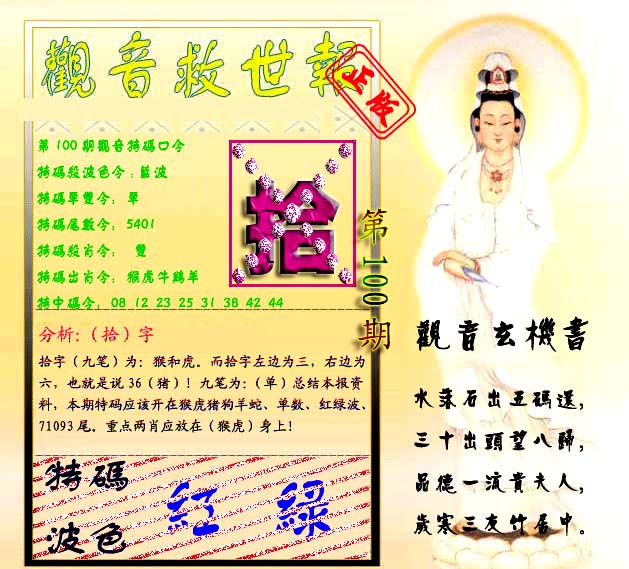 觀音救世報
正传
第100期觀音特碼口令
特碼殺波色令:藍波
特碼單雙令: 單
特碼尾數令: 5401
特碼殺肖令: 雙
特碼出肖令: 猴虎牛鷄羊
特中碼令: 08 12 23 25 31 38 42 44
拾
第100期
分析:(拾)字
拾字(九笔)为:猴和虎。而拾字左边为三,右边为
六,也就是说36(猪)!九笔为:(单)总结本报资
料,本期特码应该开在猴虎猪狗羊蛇、单数、红绿波、
71093尾。重点两肖应放在(猴虎)身上!
特碼
波色
紅 綠
觀音玄機書
水落石出五碼還,
三十出頭望八歸,
品德一流貴夫人,
歲寒三友竹居中。